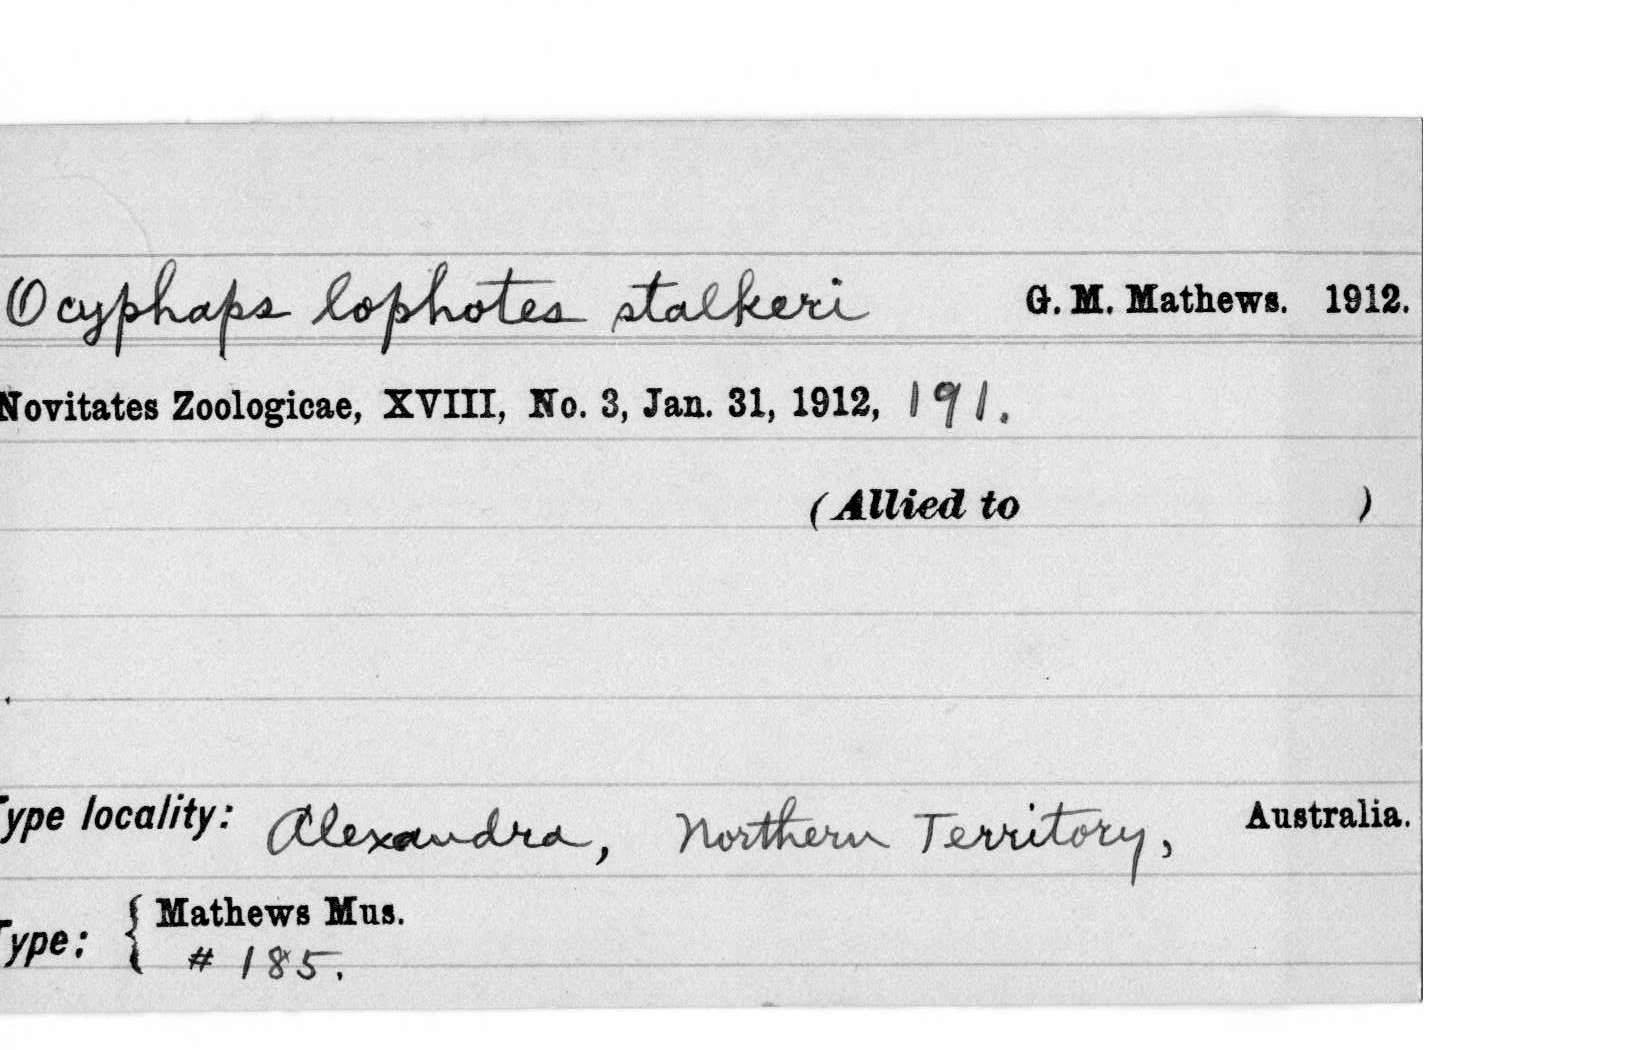 Ocyphaps lophotes stalkeri G. M. Mathews. 1912.
Novitates Zoologicae, XVIII, No. 3, Jan. 31, 1912, 191.
(Allied to )
Type locality: Alexandra, Northern Territory, Australia.
Type: { Mathews Mus.
# 185.